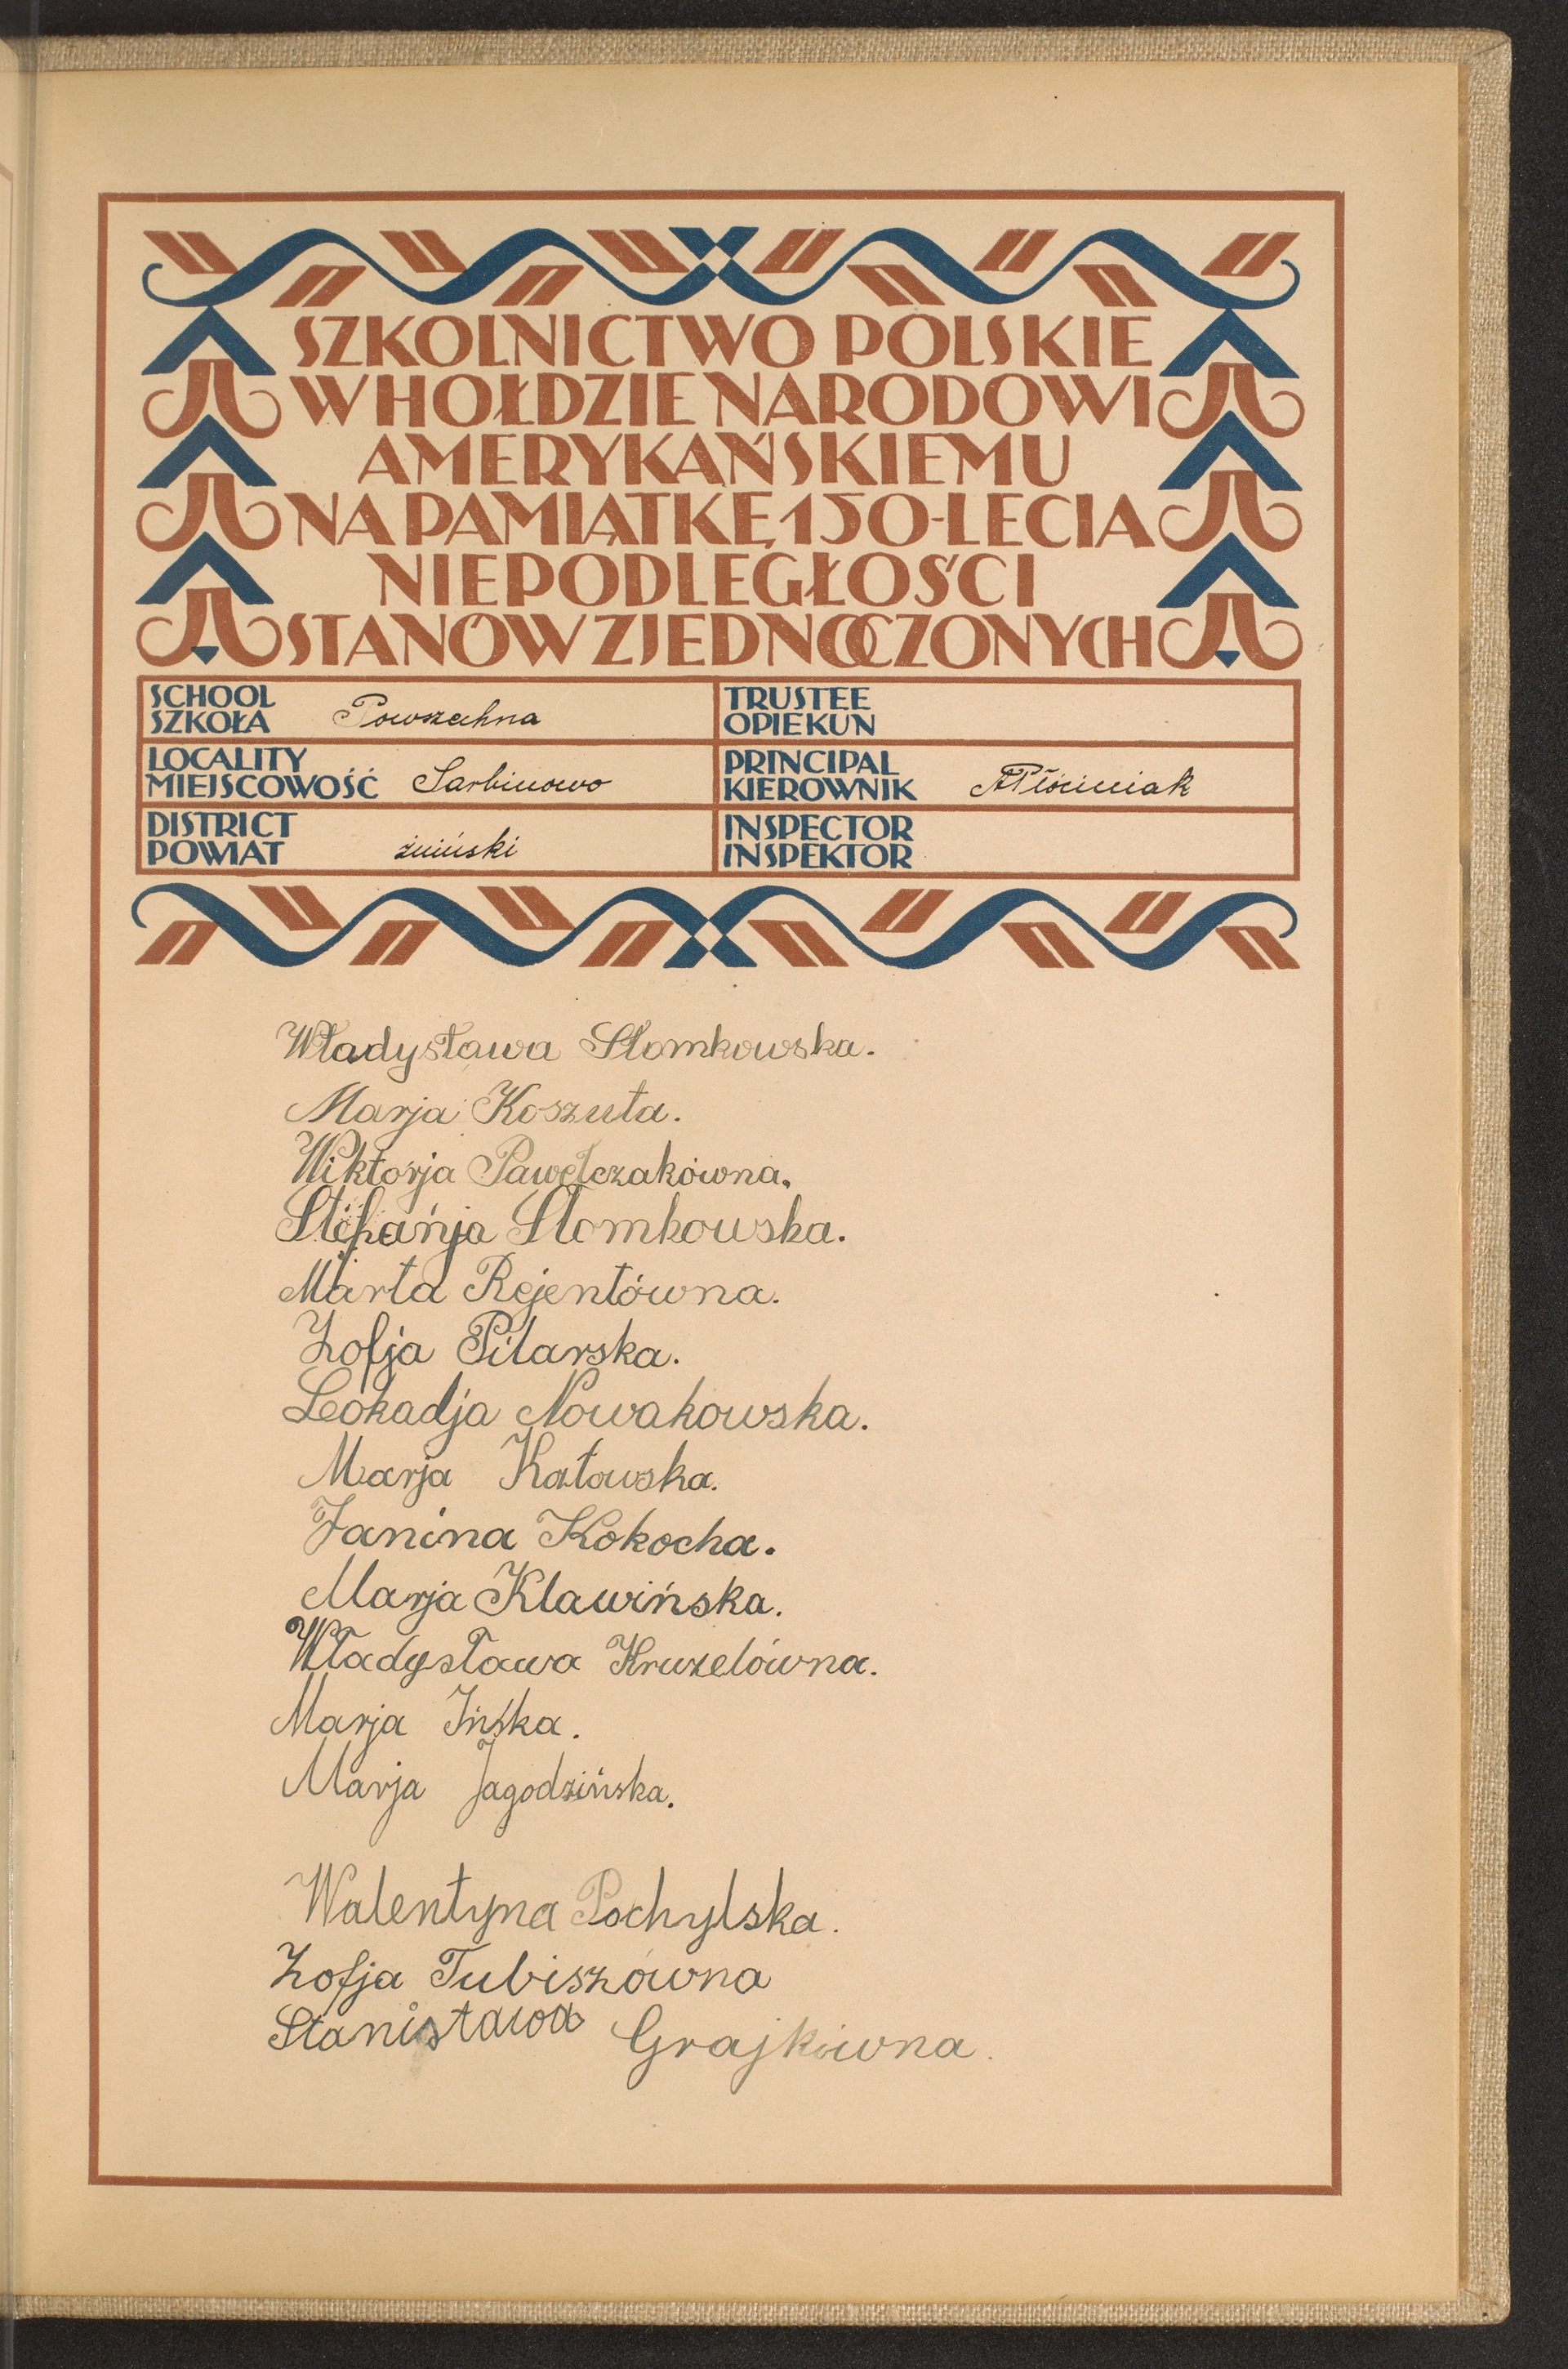 SZKOLNICTWO POLSKIE
W HOŁDZIE NARODOWI
AMERYKAŃSKIEMU
NA PAMIĄTKĘ 150-LECIA
NIEPODLEGŁOŚCI
STANÓW ZJEDNOCZONYCH
SCHOOL
SZKOŁA Powszechna
TRUSTEE
OPIEKUN
LOCALITY
MIEJSCOWOŚĆ Sarbinowo
PRINCIPAL
KIEROWNIK APłóciniak
DISTRICT
POWIAT żniński
INSPECTOR
INSPEKTOR
Władysława Słomkowska.
Marja Koszuta.
Wiktorja Pawełczakówna.
Stefańja Słomkowska.
Marta Rejentówna.
Zofja Pilarska.
Leokadja Nowakowska.
Marja Katowska.
Janina Kokocha.
Marja Klawińska.
Władysława Kruzelówna.
Marja Ińska.
Marja Jagodzińska.
Walentyna Pochylska.
Zofja Tubiszówna
Stanisława Grajkówna.